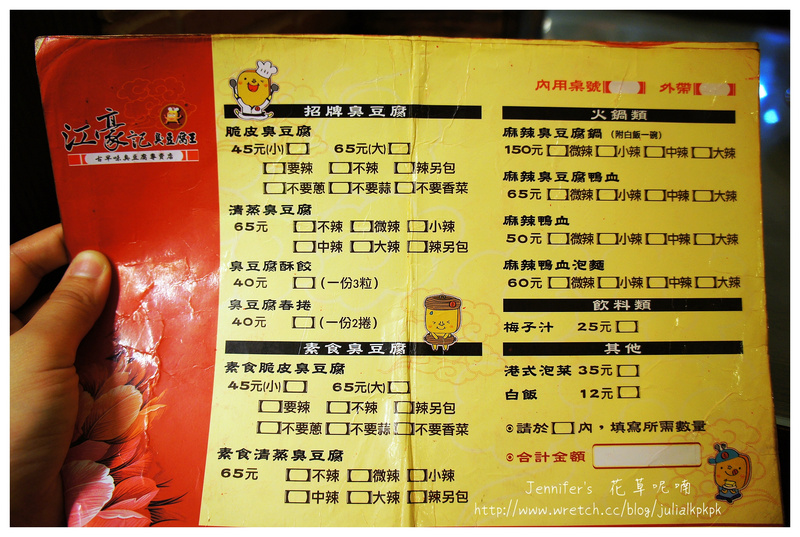 江豪記臭豆腐王
古早味臭豆腐專賣店
內用桌號 外帶
招牌臭豆腐
脆皮臭豆腐
45元(小) 65元(大)
要辣 不辣 辣另包
不要蔥 不要蒜 不要香菜
清蒸臭豆腐
65元 不辣 微辣 小辣
中辣 大辣 辣另包
臭豆腐酥餃
40元 (一份3粒)
臭豆腐春捲
40元 (一份2捲)
素食臭豆腐
素食脆皮臭豆腐
45元(小) 65元(大)
要辣 不辣 辣另包
不要蔥 不要蒜 不要香菜
素食清蒸臭豆腐
65元 不辣 微辣 小辣
中辣 大辣 辣另包
火鍋類
麻辣臭豆腐鍋 (附白飯一碗)
150元 微辣 小辣 中辣 大辣
麻辣臭豆腐鴨血
65元 微辣 小辣 中辣 大辣
麻辣鴨血
50元 微辣 小辣 中辣 大辣
麻辣鴨血泡麵
60元 微辣 小辣 中辣 大辣
飲料類
梅子汁 25元
其他
港式泡菜 35元
白飯 12元
請於 內，填寫所需數量
合計金額
Jennifer's 花草呢喃
http://www.wretch.cc/blog/julialkpkpk